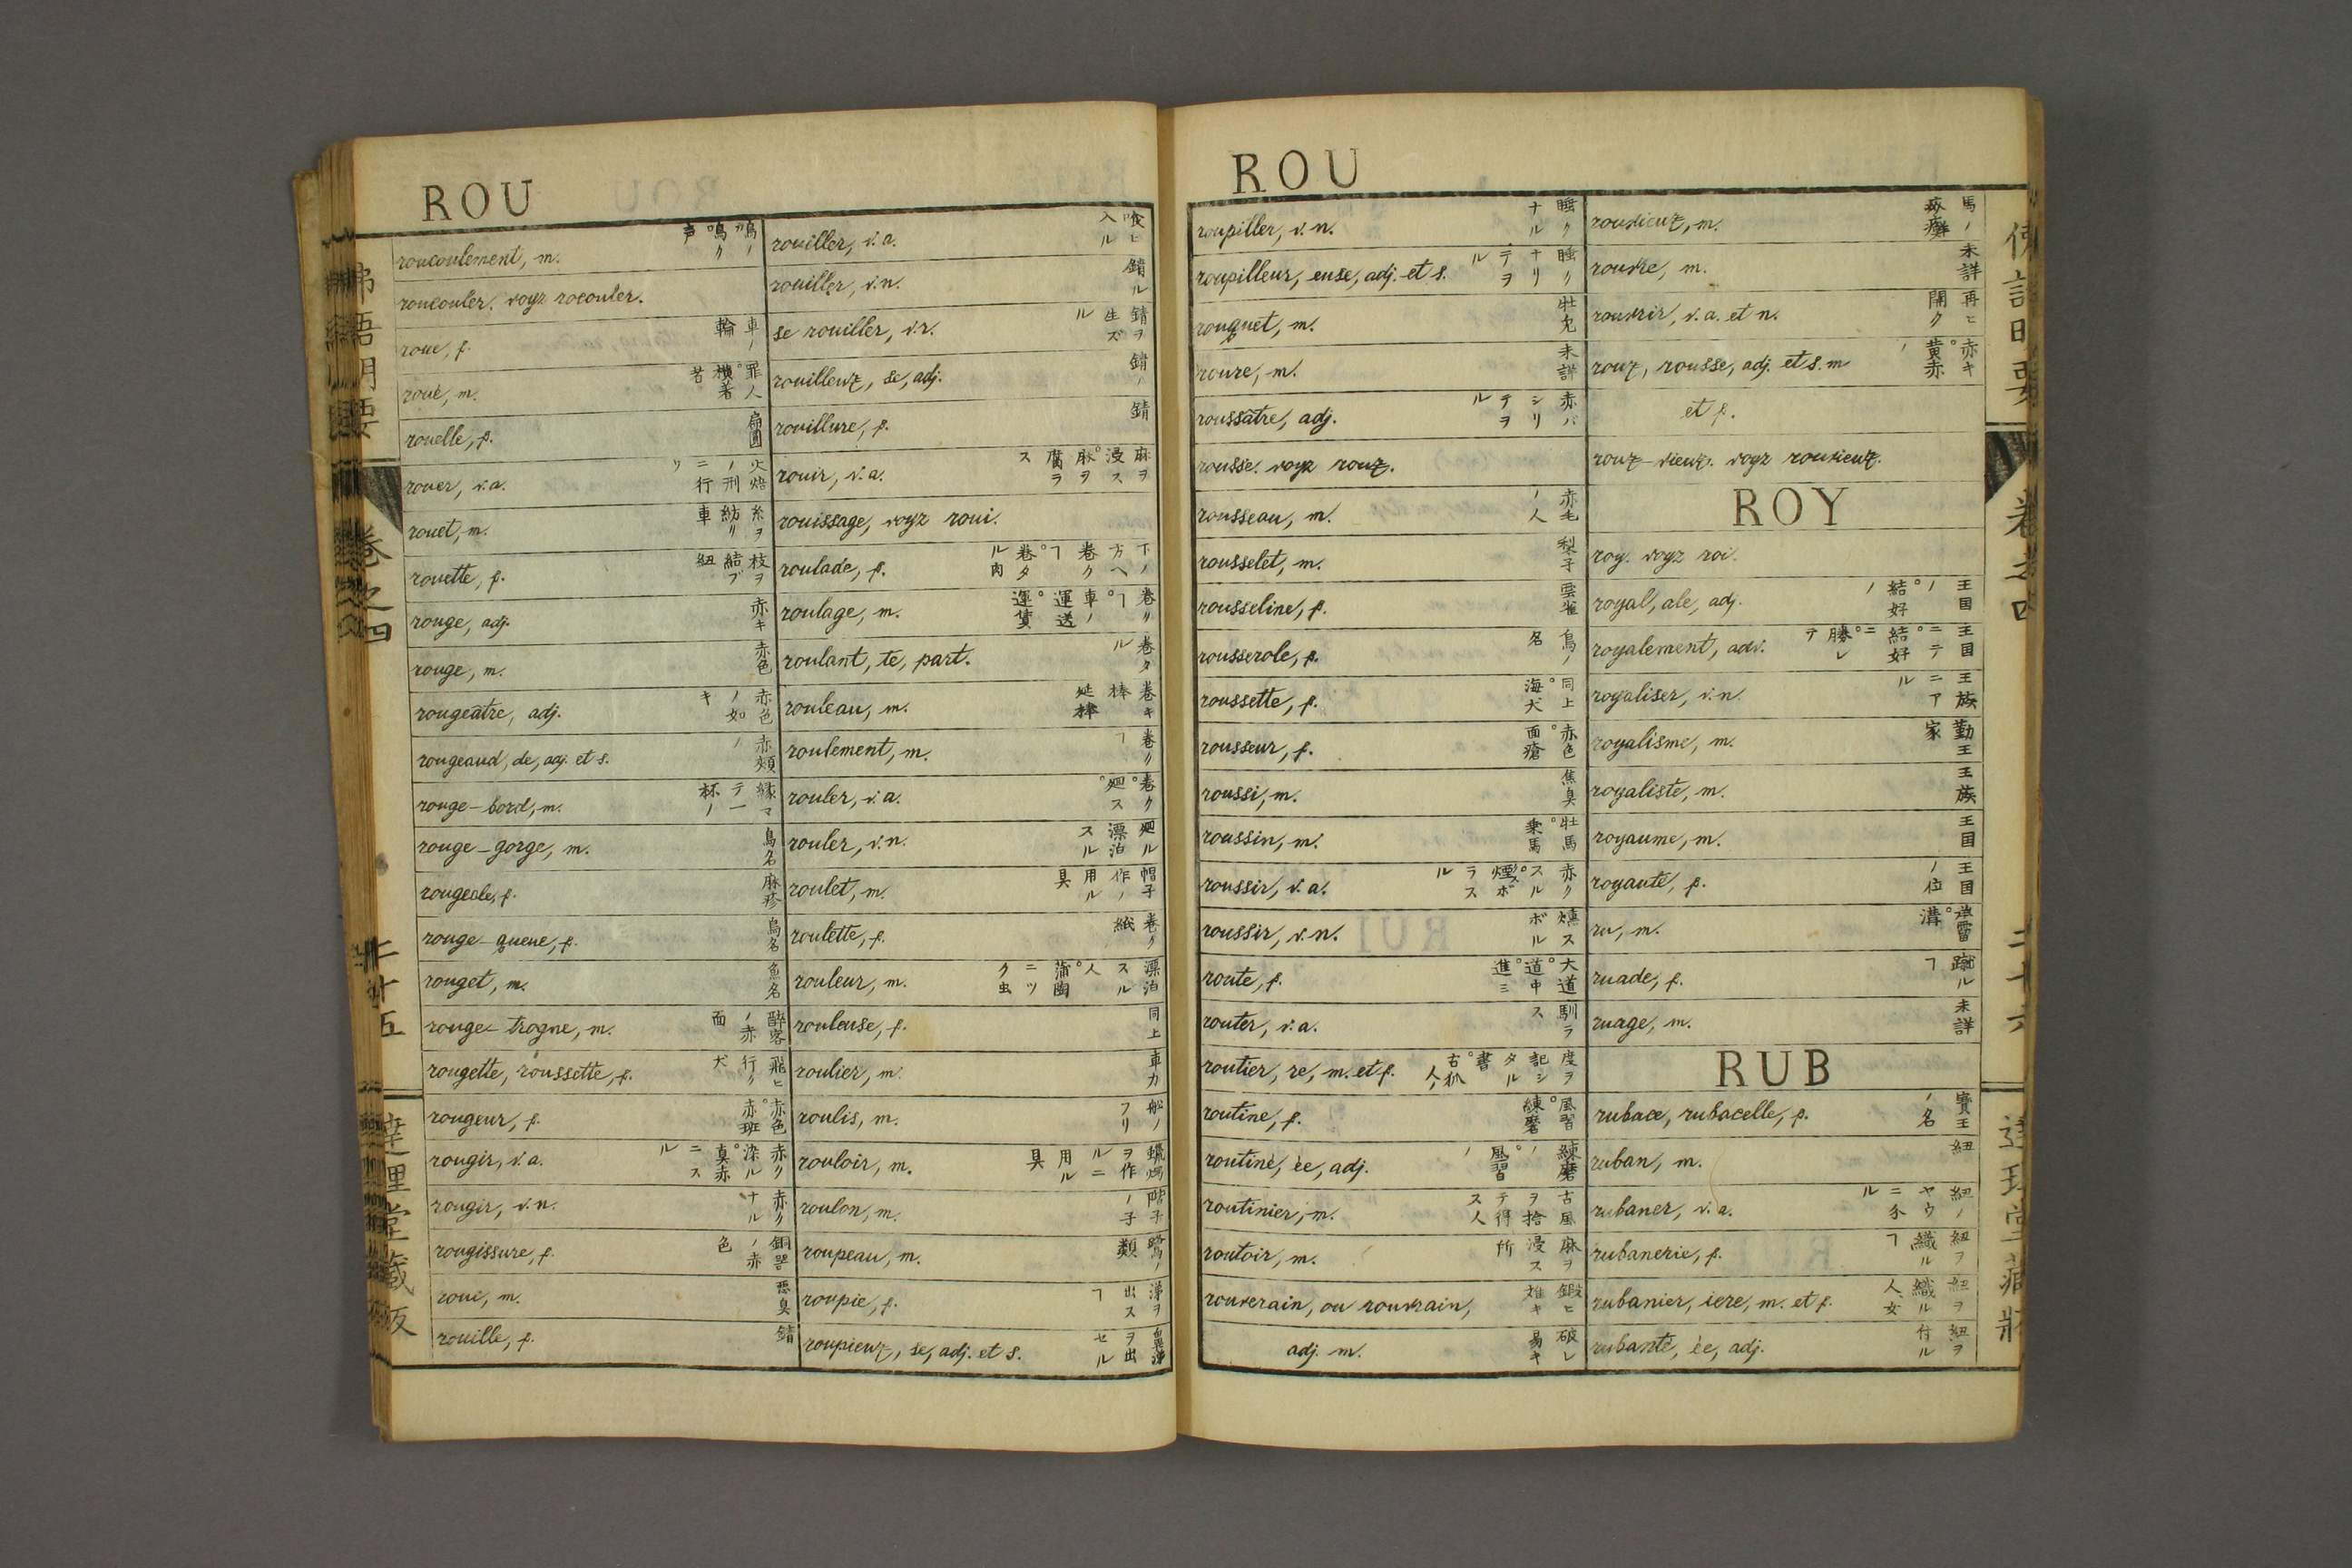 ROU
roucoulement, m. 鳩ノ鳴ク声
roucouler. voyz rocouler.
roue, f. 車ノ輪
roué, m. 罪人。横著者
rouelle, f. 扁圓
rouer, v.a. 火焙ノ刑ニ行ツ
rouet, m. 糸ヲ紡リ車
rouette, f. 枝ヲ結ブ紐
rouge, adj. 赤キ
rouge, m. 赤色
rougeâtre, adj. 赤色ノ如キ
rougeaud, de, adj. et s. 赤頬ノ
rouge-bord, m. 縁マテ一杯ノ
rouge-gorge, m. 鳥名
rougeole, f. 麻疹
rouge-queue, f. 鳥名
rouget, m. 魚名
rouge-trogne, m. 醉客ノ赤面
rougette, roussette, f. 飛ヒ行ク犬
rougeur, f. 赤色。赤斑
rougir, v.a. 赤ク染ル。真赤ニスル
rougir, v.n. 赤クナル
rougissure, f. 銅器ノ赤色
roui, m. 悪臭
rouille, f. 錆
rouiller, v.a. 喰ヒ入ル
rouiller, v.n. 錆ル
se rouiller, v.r. 錆ヲ生ズル
rouilleux, se, adj. 錆ノ
rouillure, f. 錆
rouir, v.a. 麻ヲ浸ス。麻ヲ腐ラス
rouissage, voyz roui.
roulade, f. 下ノ方ヘ巻クヿ。巻タル肉
roulage, m. 巻リヿ。車ノ運送。運賃
roulant, te, part. 巻タル
rouleau, m. 巻キ棒 延棒
roulement, m. 巻クヿ
rouler, v.a. 巻ク。廻ス。
rouler, v.n. 廻ル 漂泊スル
roulet, m. 帽子作ノ用ル具
roulette, f. 巻ク紙
rouleur, m. 漂泊スル人。蒲陶ニツク虫
rouleuse, f. 同上
roulier, m. 車力
roulis, m. 船ノフリ
rouloir, m. 蠟燭ヲ作ルニ用ル具
roulon, m. 階子ノ子
roupeau, m. 鷺ノ類
roupie, f. 洟ヲ出スヿ
roupieux, se, adj. et s. 鼻洟ヲ出セル
卷之四
二十五
達理堂蔵版
ROU
roupiller, v.n. 睡クナル
roupilleur, euse, adj. et s. 睡クナリテヲル
rouquet, m. 牡兔
roure, m. 未詳
roussâtre, adj. 赤バシリテヲル
rousse. voyz roux.
rousseau, m. 赤毛ノ人
rousselet, m. 梨子
rousseline, f. 雲雀
rousserole, f. 鳥ノ名
roussette, f. 同上。海犬
rousseur, f. 赤色。面瘡
roussi, m. 焦臭
roussin, m. 牡馬。乗馬
roussir, v.a. 赤クスル。煙スボラスル
roussir, v.n. 燻スボル
route, f. 大道。道中。進ミ
router, v.a. 馴ラス
routier, re, m. et f. 度ヲ記シタル書。古狐ノ人
routine, f. 風習。練磨
routiné, ée, adj. 練磨ノ。風習ノ
routinier, m. 古風ヲ捨テ得ス人
routoir, m. 麻ヲ浸ス所
rouverain, ou rouvrain, 鍛ヒ難キ
adj. m. 破レ易キ
rouvieux, m. 馬ノ疥癬
rouvre, m. 未詳
rouvrir, v.a. et n. 再ヒ開ク
roux, rousse, adj. et s. m 赤キ。黄赤ノ
et f.
roux-vieux. voyz rouvieux.
ROY
roy. voyz roi.
royal, ale, adj. 王国ノ。結好ノ
royalement, adv. 王国ニテ。結好ニ。勝レテ
royaliser, v.n. 王族ニアル
royalisme, m. 勤王家
royaliste, m. 王族
royaume, m. 王国
royauté, f. 王国ノ位
ru, m. 溝
ruade, f. 蹴ルヿ
ruage, m. 未詳
RUB
rubace, rubacelle, f. 寶玉ノ名
ruban, m. 紐
rubaner, v.a. 紐ノヤウニ為ル
rubanerie, f. 紐ヲ織ルヿ
rubanier, iere, m. et f. 紐ヲ織ル人、女
rubanté, ée, adj. 紐ヲ付ル
卷之四
二十六
達理堂蔵版